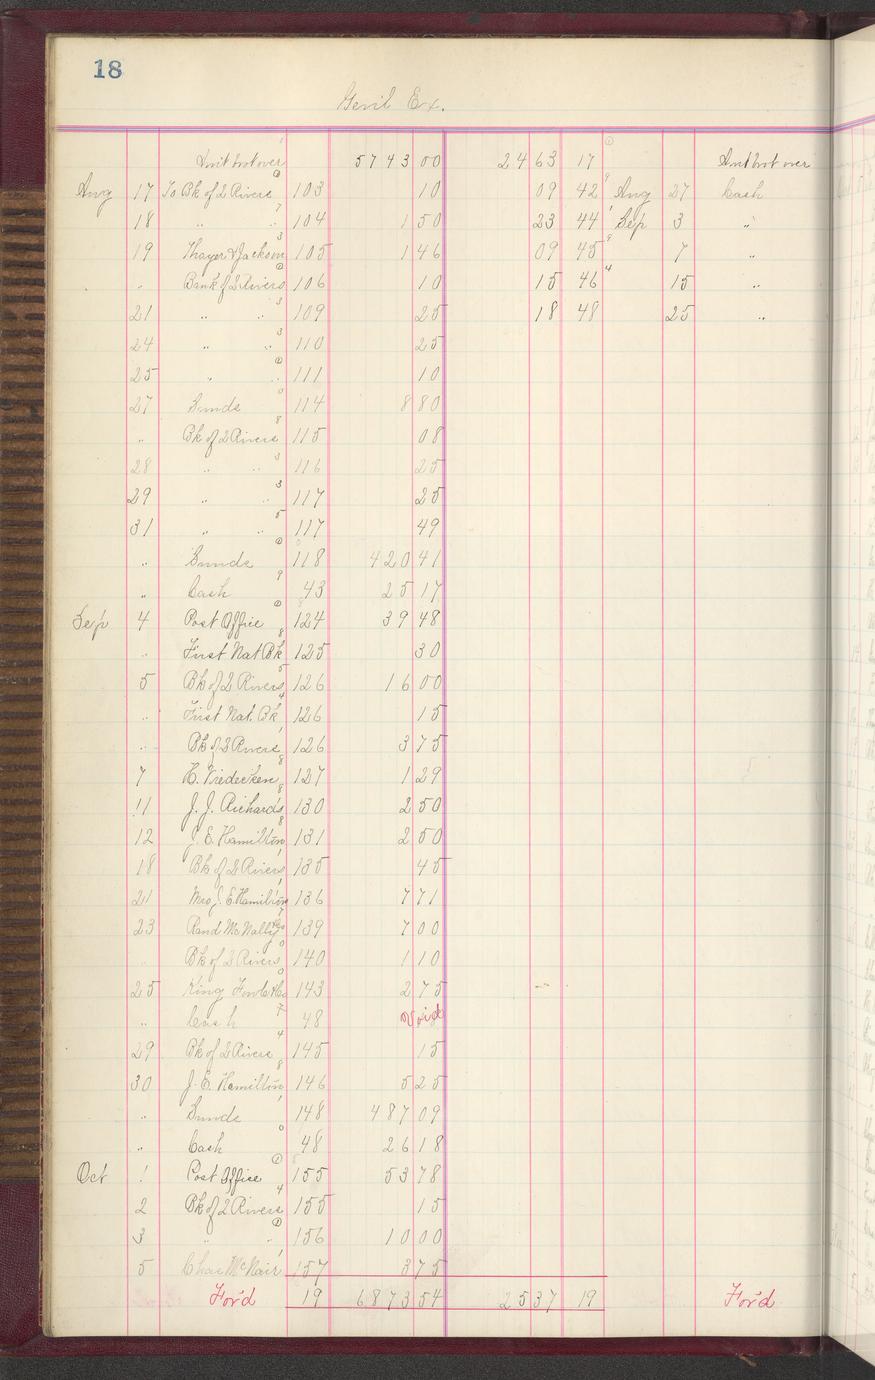 18
Genl Ex.
Amt brot over 5743 00 2463 17 Amt brot over
Aug 17 To Bk of 2 Rivers 103 10 09 42 Aug 27 Cash
18 " " 104 1 50 23 44 Sep 3 "
19 Thayer & Jackson 105 1 46 09 45 7 "
" Bank of 2 Rivers 106 10 15 46 15 "
21 " " 109 25 18 48 25 "
24 " " 110 25
25 " " 111 10
27 Sunds 114 8 80
" Bk of 2 Rivers 115 08
28 " " 116 25
29 " " 117 25
31 " " 117 49
" Sunds 118 420 41
" Cash 43 25 17
Sep 4 Post Office 124 39 48
" First Nat Bk 125 30
5 Bk of 2 Rivers 126 16 00
" First Nat. Bk 126 15
" Bk of 2 Rivers 126 3 75
7 H. 127 1 29
11 J. J. Richards 130 2 50
12 J. E. Hamilton 131 2 50
18 Bk of 2 Rivers 135 45
21 Mrs J. E. Hamilton 136 7 71
23 Rand McNally & Co 139 7 00
" Bk of 2 Rivers 140 1 10
25 King Fowle & Co 143 2 75
" Cash 48 Void
29 Bk of 2 Rivers 145 15
30 J. E. Hamilton 146 5 25
" Sunds 148 487 09
" Cash 48 26 18
Oct 1 Post Office 155 53 78
2 Bk of 2 Rivers 155 15
3 " " 156 10 00
5 Chas McNair 157 3 75
For'd 19 6873 54 2537 19 For'd